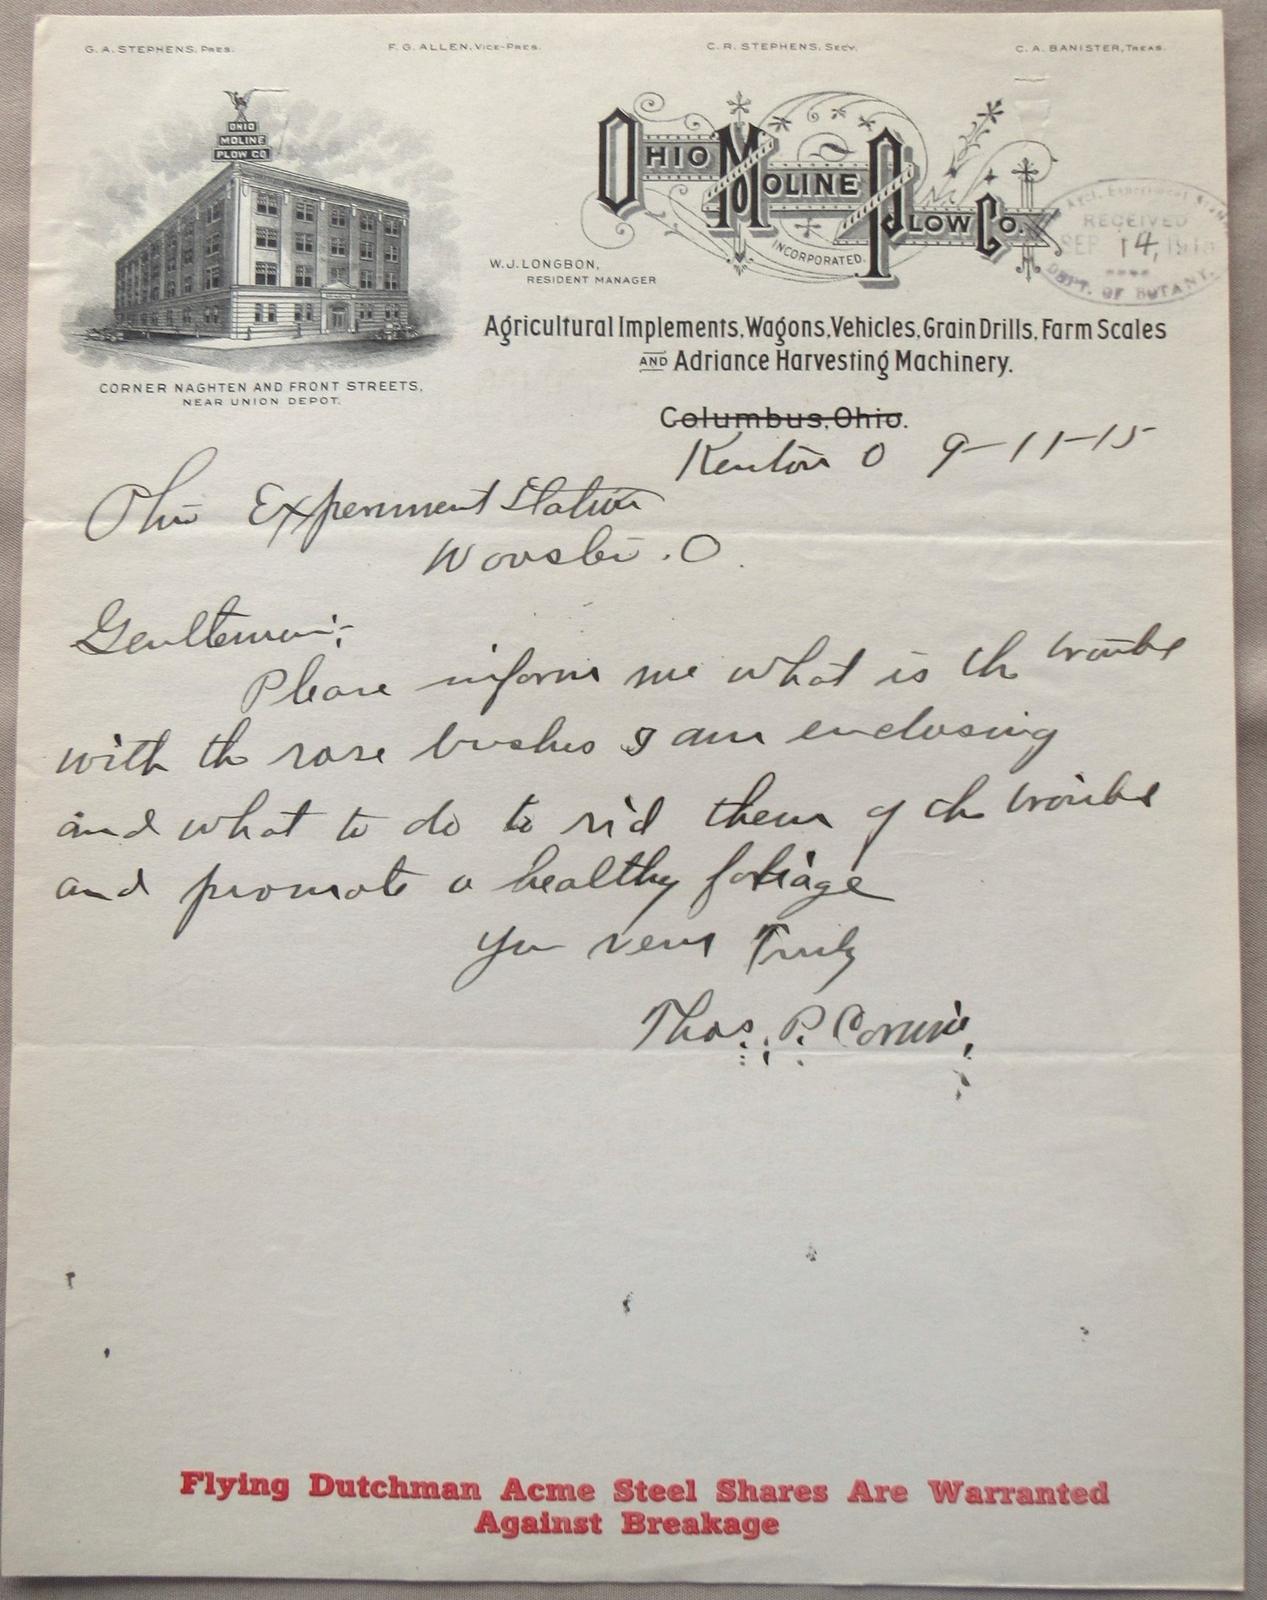 G. A. STEPHENS, PRES.
F. G. ALLEN, VICE-PRES.
C. R. STEPHENS, SECY.
C. A. BANISTER, TREAS.
OHIO
MOLINE
PLOW CO
OHIO MOLINE PLOW CO.
INCORPORATED.
W. J. LONGBON,
RESIDENT MANAGER
Agrl. Experiment
RECEIVED
SEP 14, 1915
DEPT. OF BOTANY.
Agricultural Implements, Wagons, Vehicles, Grain Drills, Farm Scales
AND Adriance Harvesting Machinery.
CORNER NAGHTEN AND FRONT STREETS,
NEAR UNION DEPOT.
Columbus, Ohio.
Kenton O 9-11-15
Ohio Experiment Station
Wooster. O.
Gentlemen:-
Please inform me what is the trouble
with the rose bushes I am enclosing
and what to do to rid them of the trouble
and promote a healthy foliage
Truly
Thos. P.
Flying Dutchman Acme Steel Shares Are Warranted
Against Breakage